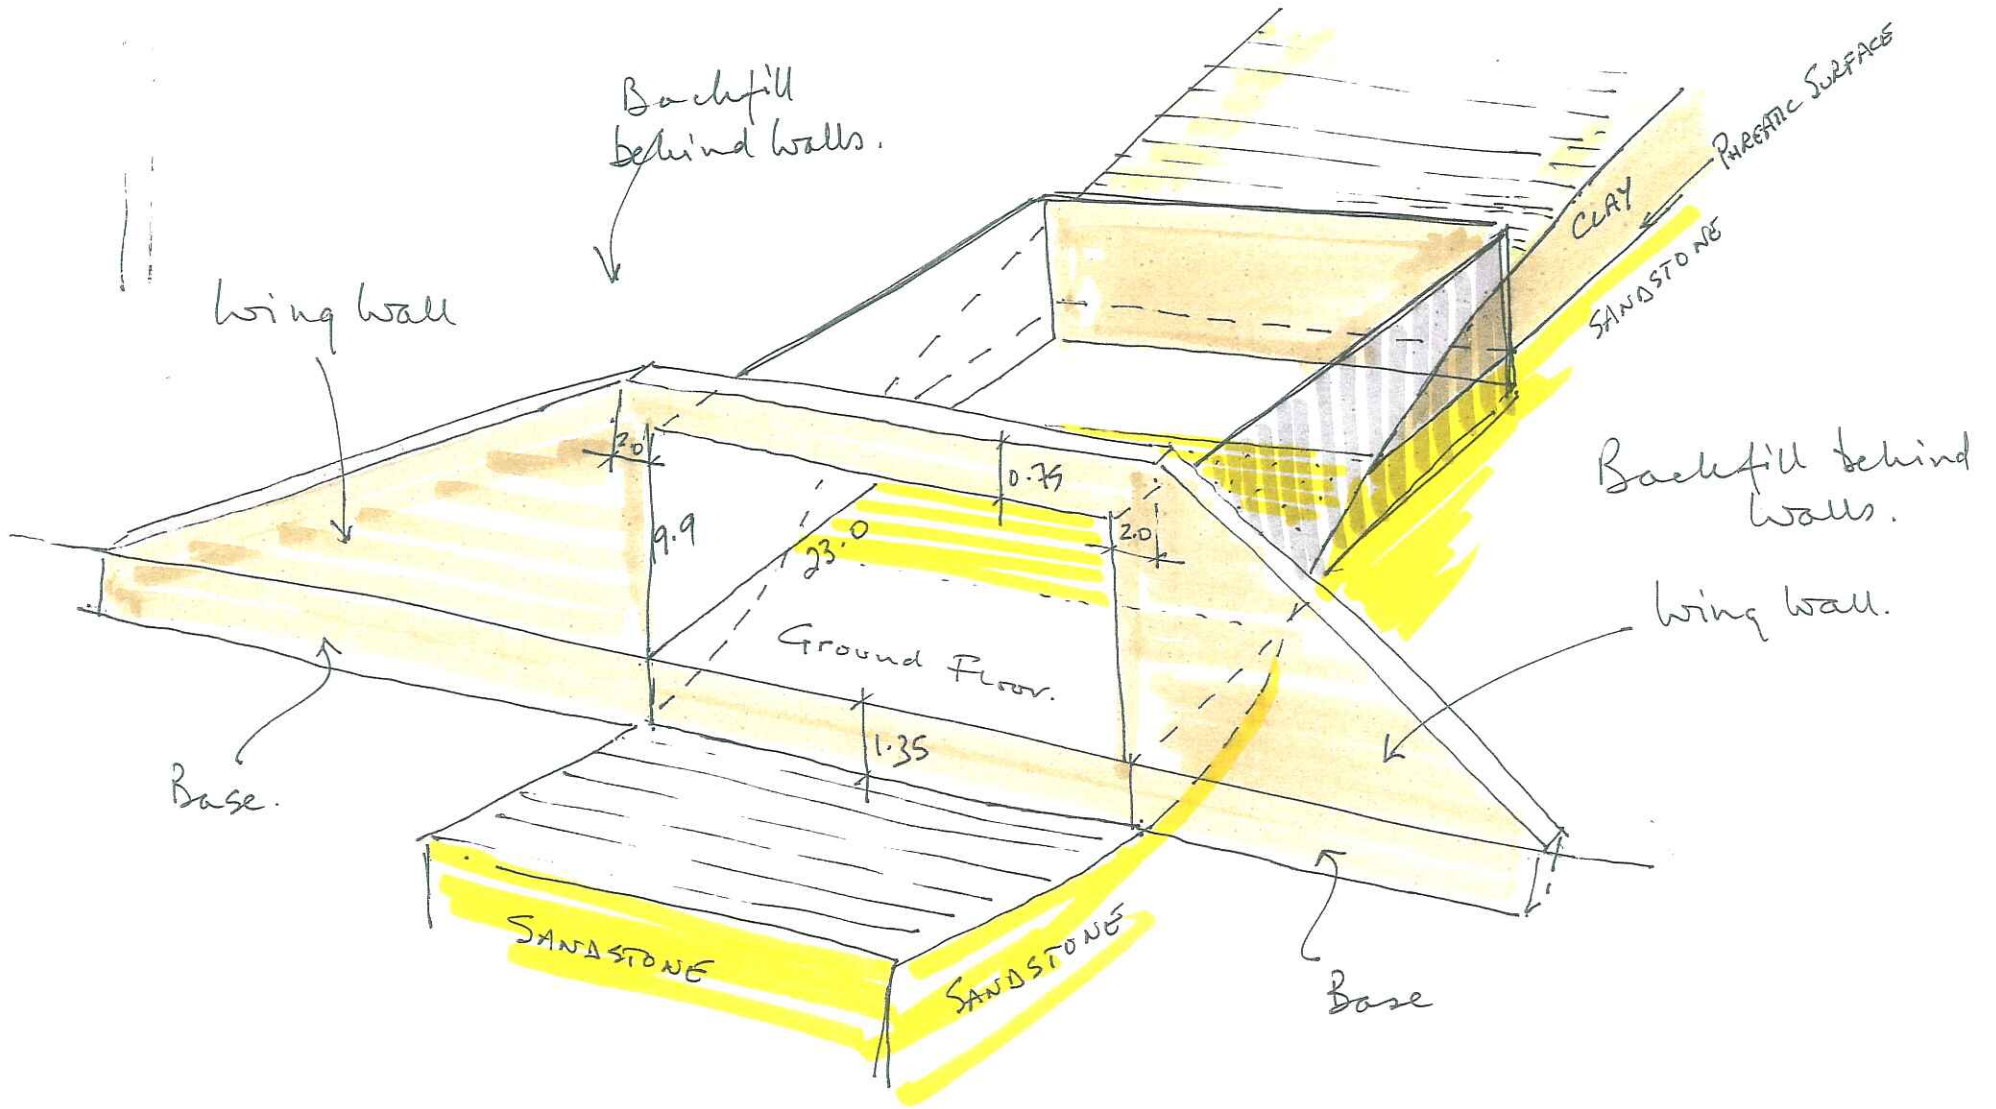 Backfill
behind walls.
PHREATIC SURFACE
CLAY
SANDSTONE
Wing Wall
2.0
0.75
9.9
23.0
2.0
Backfill behind
walls.
Wing Wall.
Ground Floor.
1.35
Base.
SANDSTONE
SANDSTONE
Base